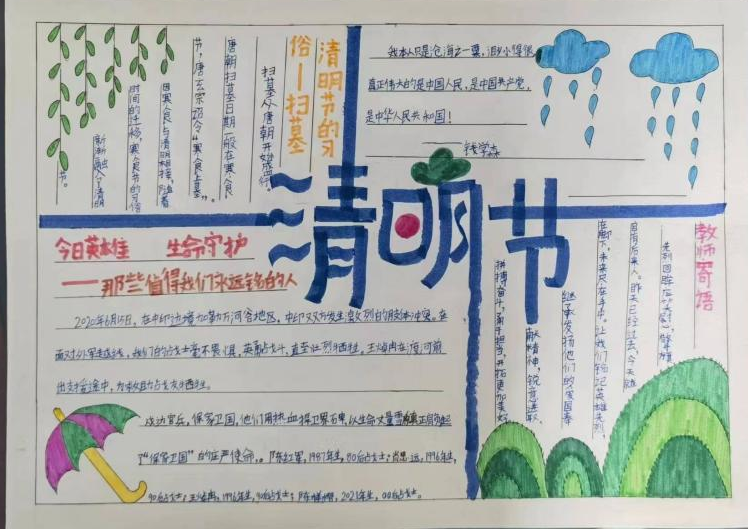 清明节
清明节的习
俗—扫墓
扫墓从唐朝开始盛行。
唐朝扫墓日期一般在寒食
节，唐玄宗诏令“寒食上墓”。
因寒食与清明相接，随着
时间的迁移，寒食节的习俗
渐渐融入了清明
节。
我本人只是沧海之一粟，渺小得很
真正伟大的是中国人民，是中国共产党，
是中华人民共和国！
——钱学森
今日英雄 生命守护
——那些值得我们永远铭记的人
2020年6月15日，在中印边境加勒万河谷地区，中印双方发生激烈的肢体冲突。在
面对外军越线，我们的战士毫不畏惧，英勇战斗，直至壮烈牺牲。王焯冉在渡河前
出支援途中，为救助战友牺牲。
戍边官兵，保家卫国，他们用热血捍卫界石界，以生命丈量
了“保家卫国”的庄严使命。陈红军，1987年生，80后战士；肖思远，1996年生，
90后战士；王焯冉，1996年生，90后战士；陈祥榕，2021年生，00后战士。
教师寄语
先烈回眸应笑慰，擎旗
自有后来人。昨天已经过去，今天就
在脚下，未来尽在手中。让我们铭记英雄先烈，
继承发扬他们的爱国奉
献精神，锐意进取
拼搏奋斗，携手担当，开拓更加美好